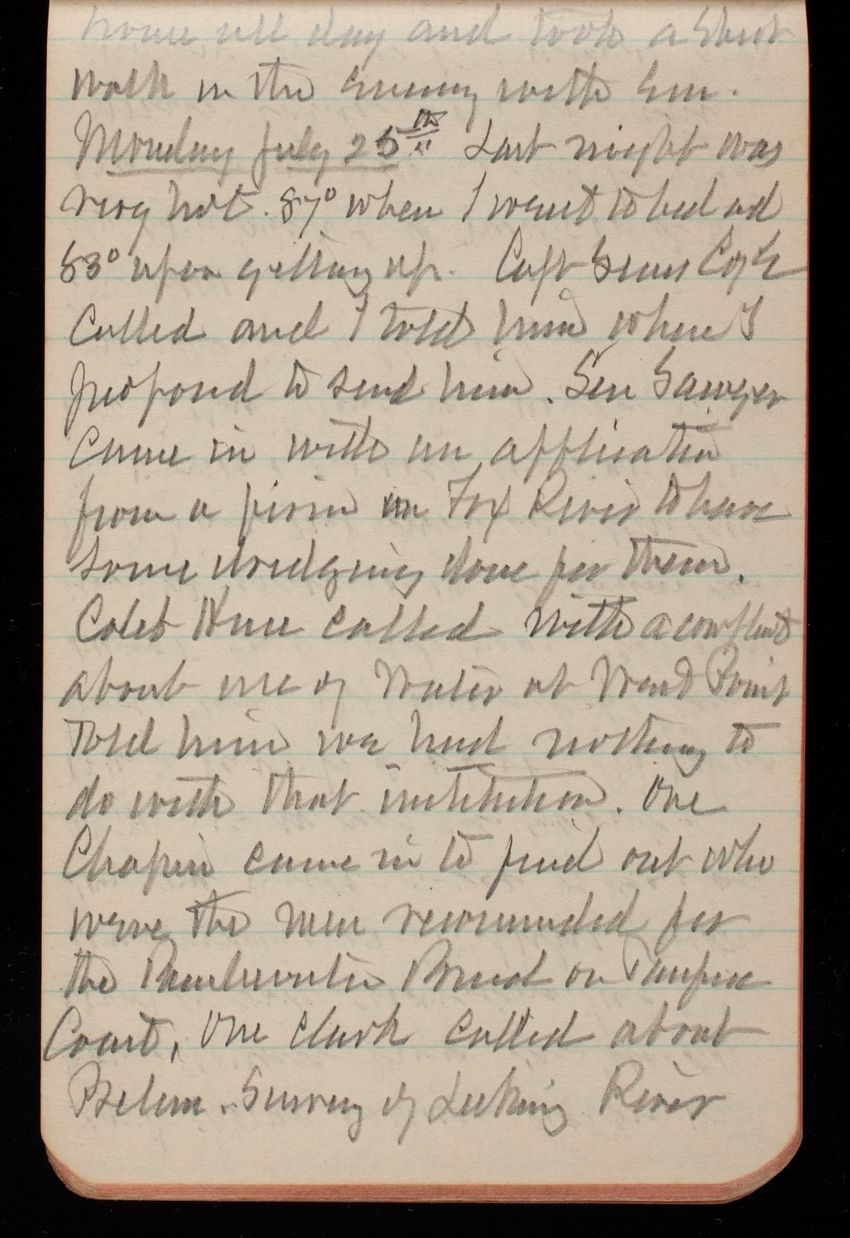 house all day and took a short
walk in the evening with Em.
Monday July 25th Last night was
very hot. 87° when I went to bed and
83° upon getting up. Capt Sears Cog E
called and I told him where I
proposed to send him. Sen Sawyer
came in with an application
from a firm in Fox River to have
some dredging done for them.
Caleb Huse called with a complaint
about use of water at West Point
Told him we had nothing to
do with that institution. One
Chapin came in to find out who
were the men recommended for
the Board on
Coast, One Clark called about
Prelim. Survey of Licking River